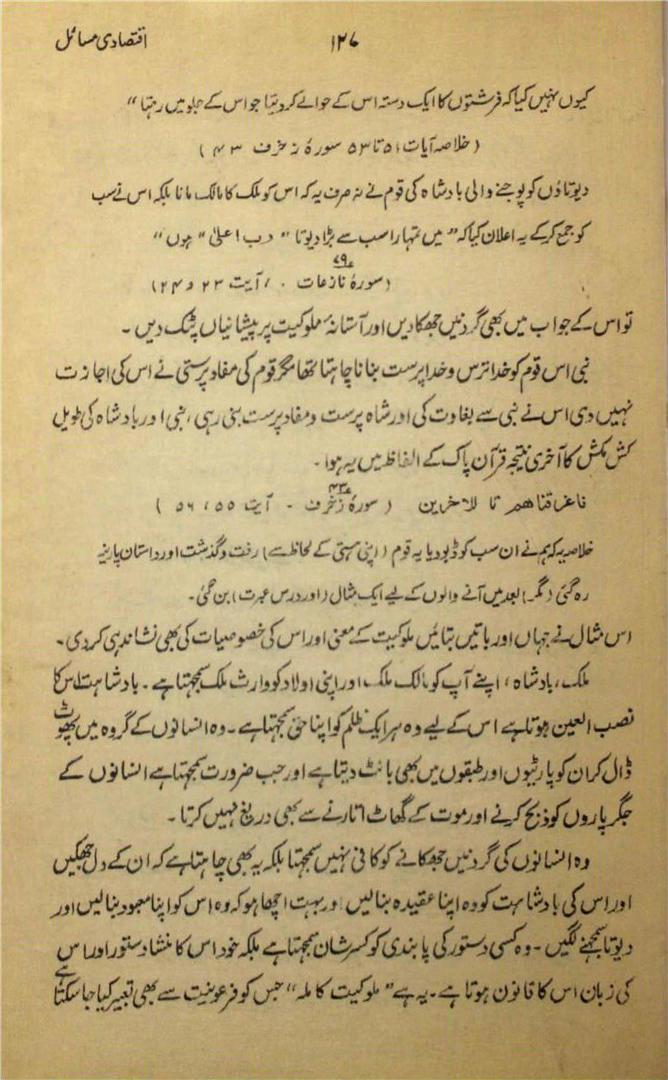 اقتصادی مسائل
۱۲۷
کیوں نہیں کیا کہ فرشتوں کا ایک دستہ اس کے حوالے کر دیتا جو اس کے جلو میں رہتا “
( خلاصہ آیات ۵۱ تا ۵۳ سورۂ زخرف ۴۳ )
دیوتاؤں کو پوجنے والی بادشاہ کی قوم نے نہ صرف یہ کہ اس کو ملک کا مالک مانا بلکہ اس نے سب
کو جمع کرکے یہ اعلان کیا کہ ” میں تمہارا سب سے بڑا دیوتا “ رب اعلیٰ “ ہوں “
( سورۂ نازعات ۷۹ ، آیت ۲۳ و ۲۴ )
تو اس کے جواب میں بھی گردنیں جھکا دیں اور آستانۂ ملوکیت پر پیشانیاں پٹک دیں ۔
نبی اس قوم کو خدا ترس و خدا پرست بنانا چاہتا تھا مگر قوم کی مفاد پرستی نے اس کی اجازت
نہیں دی اس نے نبی سے بغاوت کی اور شاہ پرست و مفاد پرست بنی رہی ، نبی اور بادشاہ کی طویل
کش مکش کا آخری نتیجہ قرآن پاک کے الفاظ میں یہ ہوا ۔
فاغرقناهم تا للآخرین ( سورۂ زخرف ۴۳ ۔ آیت ۵۵ ، ۵۶ )
خلاصہ یہ کہ ہم نے ان سب کو ڈبو دیا یہ قوم ( اپنی ہستی کے لحاظ سے ) رفت و گذشت اور داستان پارینہ
رہ گئی ( مگر ) بعد میں آنے والوں کے لیے ایک مثال ( اور درس عبرت ) بن گئی ۔
اس مثال نے جہاں اور باتیں بتائیں ملوکیت کے معنی اور اس کی خصوصیات کی بھی نشاندہی کر دی ۔
ملک ، بادشاہ ، اپنے آپ کو مالک ملک اور اپنی اولاد کو وارث ملک سمجھتا ہے ۔ بادشاہت اس کا
نصب العین ہوتا ہے اس کے لیے وہ ہر ایک ظلم کو اپنا حق سمجھتا ہے ۔ وہ انسانوں کے گروہ میں پھوٹ
ڈال کر ان کو پارٹیوں اور طبقوں میں بھی بانٹ دیتا ہے اور جب ضرورت سمجھتا ہے انسانوں کے
جگر پاروں کو ذبح کرنے اور موت کے گھاٹ اتارنے سے بھی دریغ نہیں کرتا ۔
وہ انسانوں کی گردنیں جھکانے کو کافی نہیں سمجھتا بلکہ یہ بھی چاہتا ہے کہ ان کے دل جھکیں
اور اس کی بادشاہت کو وہ اپنا عقیدہ بنا لیں اور بہت اچھا ہو کہ وہ اس کو اپنا معبود بنا لیں اور
دیوتا سمجھنے لگیں ۔ وہ کسی دستور کی پابندی کو کسر شان سمجھتا ہے بلکہ خود اس کا منشا دستور اور اس
کی زبان اس کا قانون ہوتا ہے ۔ یہ ہے ” ملوکیت کاملہ “ جس کو فرعونیت سے بھی تعبیر کیا جا سکتا ہے